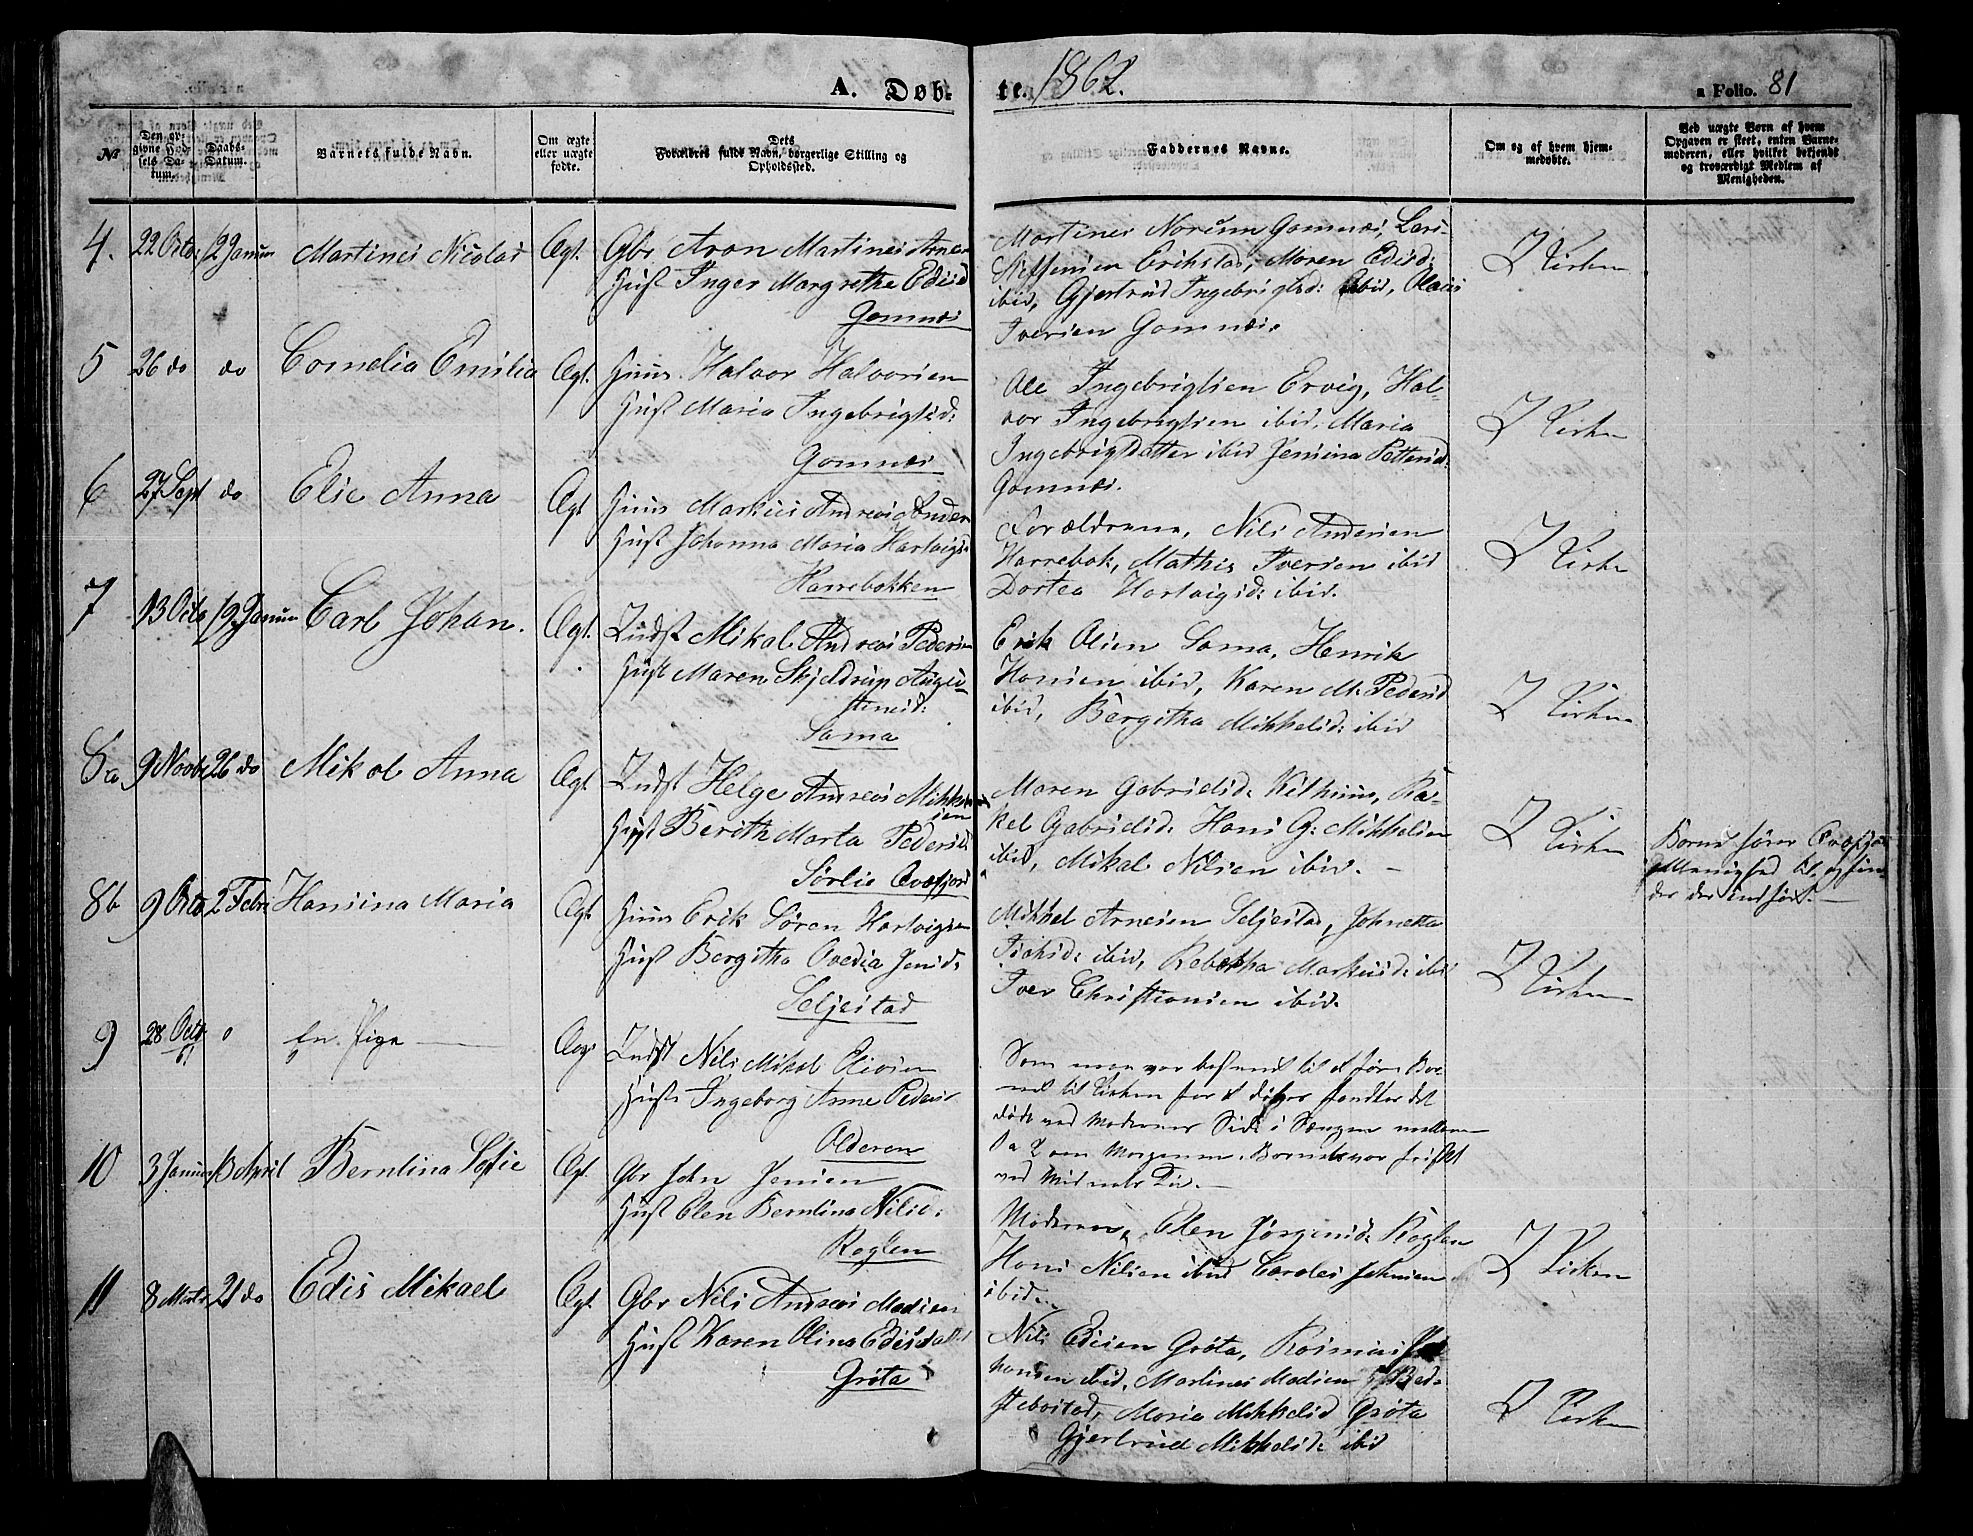 A. Døb-
te. 1862.
a Folio. 81
№
Den op-
givne Fød-
sels Da-
tum.
Daabs-
Datum.
Barnets fulde Navn.
Om ægte
eller uægte
fødte.
Dets
Forældres fulde Navn, borgerlige Stilling og
Opholdssted.
Faddernes Navne.
Om og af hvem hjem-
medøbte.
Ved uægte Børn af hvem
Opgaven er skeet, enten Barne-
moderen, eller hvilket bekjendt
og troværdigt Medlem af
Menigheden.
4. 22 Octo 12 Januar Martines Nicolai Ægt.
Gbr Aron Martines Arne
Hust Inger Margrethe Edisd
Gomnæs
Martines Norum Gomnæs, Lars
Steffensen Erikstad, Maren Edisd:
ibid, Gjertrud Ingebrigtsd: ibid, Olaus
Iversen Gomnæs.
I Kirken
5 26 do do Cornelia Emilia Ægt.
Huus. Halvor Halvorsen
Hust Maria Ingebrigtsd:
Gomnæs
Ole Ingebrigtsen Ervig, Hal-
vor Ingebrigtsen ibid, Maria
Ingebrigtsdatter ibid Jensina Pettersd:
Gomnæs.
I Kirken
6 27 Sept do Elie Anna Ægt
Huus Markus Andreas Ander
Hust Johanna Maria Hartvigsd
Harrebakken
Forældrene, Nils Andersen
Harrebak, Mathis Iversen ibid
Dortea Hartvigsd: ibid.
I Kirken
7 13 Octo 19 Januar Carl Johan. Ægt.
Indst Mikal Andreas Pedersen
Hust Maren Skjeldrup Augu-
stinusd:
Sama
Erik Olsen Sama, Henrik
Hansen ibid, Karen M. Pedersd
ibid, Bergitha Mikkelsd: ibid
I Kirken
8a 9 Novbr 26 do Mikal Anna Ægt
Indst Helge Andreas Mikkel
sen
Hust Berith Marta Pedersd.
Sørlie Qvæfjord
Maren Gabrielsd: Kilhuus, Ra-
kel Gabrielsd: Hans G: Mikkelsen
ibid, Mikal Nilsen ibid.
I Kirken
Barnet hører Qvæfjord
Menighed til og fin-
des der indført.
8b 9 Octo 2 Febr Hansina Maria Ægt
Huus Erik Søren Hartvigsen
Hust Bergitha Ovedia Jensd:
Seljestad
Mikkel Arnesen Seljestad, Johnetta
ibid, Rebekka Markusd: ibid
Iver Christiansen ibid.
I Kirken
9 28 Octo
61 0 En Pige Ægt
Indst Nils Mikal
Hust Ingeborg Anne Pedersd
Olderen
Som man var til at føre Bar-
net til Kirken for at døbes fandtes det
død ved Moderens Side i Sengen mellem
1 a 2 om Morgenen. Barnet var friskt
ved Midnats Tid.
10 3 Januar 13 April Berntina Sofie Ægt.
Gbr John Jensen
Hust Elen Berntina Nilsd:
Roglen
Moderen, Elen Jørgensd: Roglen
Hans Nilsen ibid Carolus Johnsen
ibid.
I Kirken
11 8 Marts 21 do Edis Mikael Ægt.
Gbr Nils Andreas Madsen
Hust Karen Olina Edisdatter
Grøta
Nils Edisen Grøta, Rasmus
hansen ibid, Martines Madsen
stebostad, Maria Mikkelsd Grøta
Gjertrud Mikkelsd: ibid
I Kirken